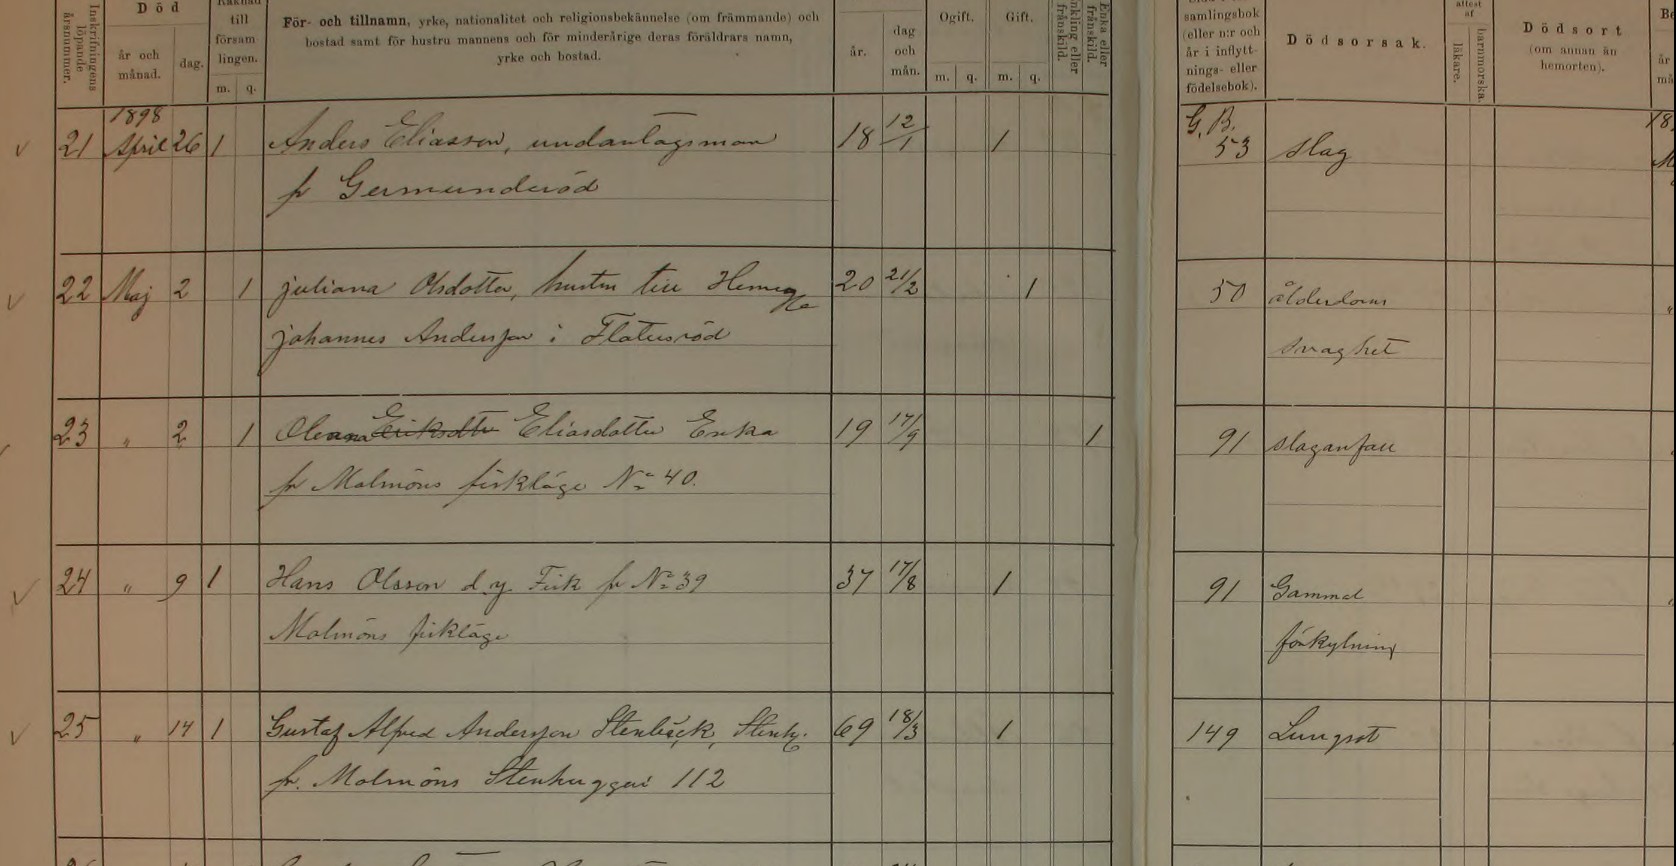 Inskrifningens löpande årsnummer.
Död
år och månad.
dag.
Räknad till församlingen.
m. q.
För- och tillnamn, yrke, nationalitet och religionsbekännelse (om främmande) och
bostad samt för hustru mannens och för minderårige deras föräldrars namn,
yrke och bostad.
år.
dag och mån.
Ogift.
m. q.
Gift.
m. q.
enkling eller frånskild.
Enka eller frånskild.
samlingsbok
(eller n:r och
år i inflytt-
nings- eller
födelsebok).
Dödsorsak.
attest af
läkare.
barnmorska.
Dödsort
(om annan än
hemorten).
1898
21 April 26 1 Anders Eliasson, undantagsman 18 12/1 1 G.B. 53 slag
fr Germunderöd
22 Maj 2 1 juliana Olsdotter, hustru till Hemeg 20 21/2 1 50 ålderdoms
johannes Andersson i Flateröd svaghet
23 " 2 1 Olenna Eriksdtr Eliasdotter Enka 19 17/9 1 91 slaganfall
fr Malmöns fiskläge No 40.
24 " 9 1 Hans Olsson d.y. Fisk fr No 39 37 17/8 1 91 Gammal
Malmöns fiskläge förkylning
25 " 14 1 Gustaf Alfred Andersson Stenbäck, Stenh. 69 18/3 1 149 Lungsot
fr. Malmöns Stenhuggeri 112